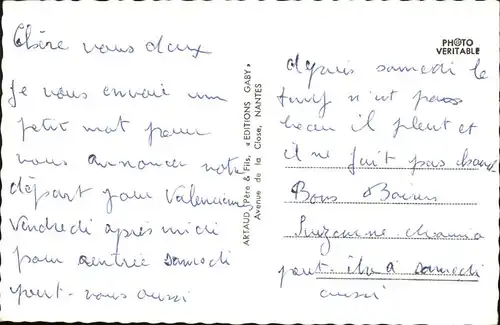 Chère vous deux
Je vous envoie un
petit mot pour
vous annoncer notre
départ pour Valencienne
Vendredi après midi
pour rentrée samedi
peut-vous aussi
ARTAUD, Père & Fils, « EDITIONS GABY »
Avenue de la Close, NANTES
PHOTO
VERITABLE
depuis samedi le
temps n'est pas
beau il pleut et
il ne fait pas chaud
Bons Baisers
Suzanne
a samedi
aussi